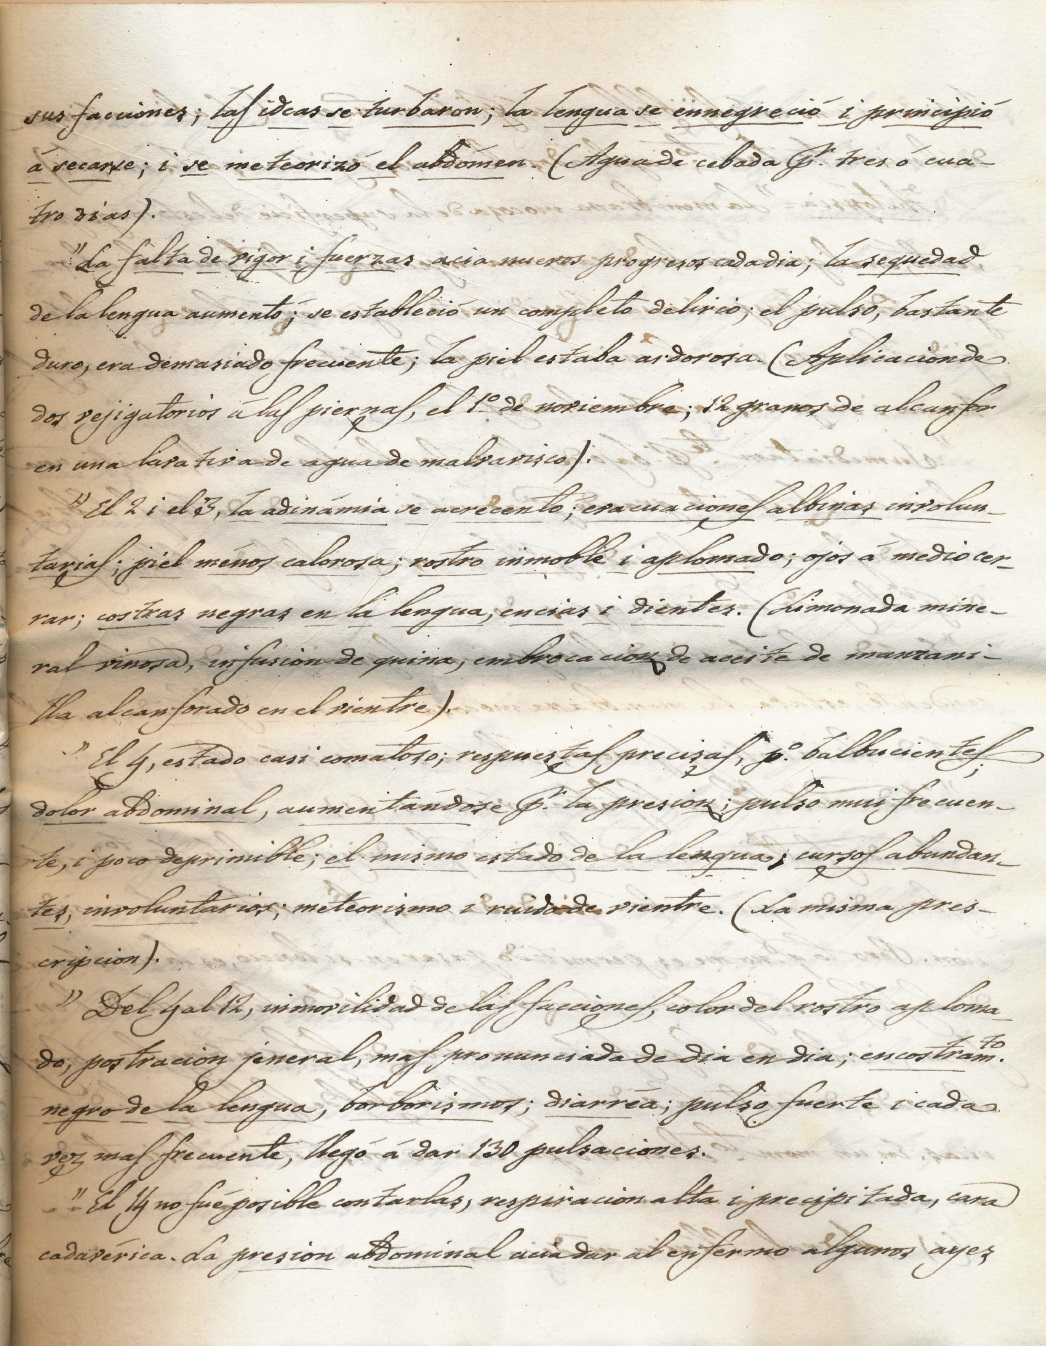 sus facciones; las ideas se turbaron; la lengua se ennegreció i principió
á secarse; i se meteorizó el abdómen. (Agua de cebada pr. tres ó cua-
tro dias).
"La falta de vigor i fuerzas acia nuevos progresos cada dia; la sequedad
de la lengua aumentó; se estableció un completo delirio; el pulso, bastante
duro, era demasiado frecuente; la piel estaba ardorosa. (Aplicacion de
dos vejigatorios á las piernas, el 1.º de noviembre; 12 granos de alcanfor
en una lavativa de agua de malvavisco).
" El 2 i el 3, la adinámia se acrecentó; evacuaciones albinas involun-
tarias; piel ménos calorosa; rostro inmoble i aplomado; ojos á medio cer-
rar; costras negras en la lengua, encias i dientes. (Limonada mine-
ral vinosa, infusion de quina, embrocacion de aceite de manzani-
lla alcanforado en el vientre).
" El 4, estado casi comatoso; respuestas precisas, po. balbucientes;
dolor abdominal, aumentándose pr. la presion; pulso mui frecuen-
te, i poco deprimible; el mismo estado de la lengua; cursos abundan-
tes, involuntarios; meteorismo i ruido de vientre. (La misma pres-
cripcion).
" Del 4 al 12, inmovilidad de las facciones, color del rostro aploma-
do, postracion jeneral, mas pronunciada de dia en dia; encostramto.
negro de la lengua, borborismos; diarréa; pulso fuerte i cada
vez mas frecuente, llegó á dar 130 pulsaciones.
" El 14 no fué posible contarlas, respiracion alta i precipitada, cara
cadavérica. La presion abdominal acia dar al enfermo algunos ayes